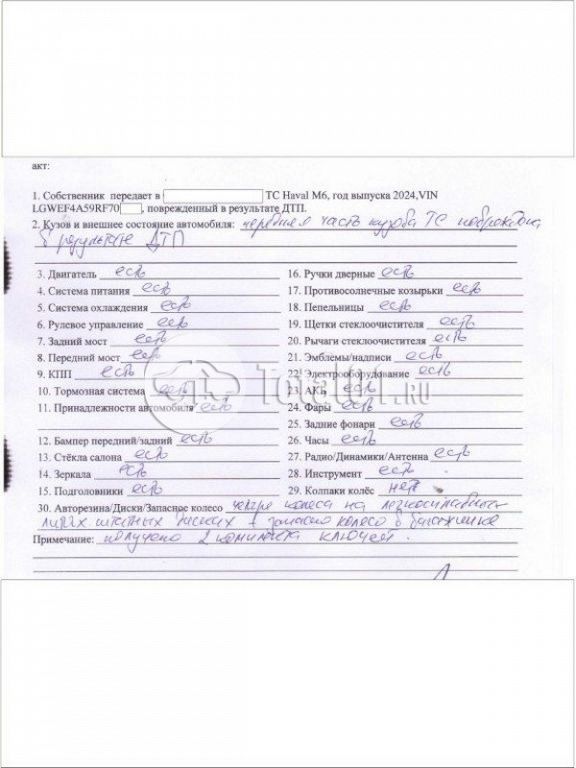 акт:
1. Собственник передает в ТС Haval М6, год выпуска 2024,VIN
LGWEF4A59RF70 , поврежденный в результате ДТП.
2. Кузов и внешнее состояние автомобиля: передняя часть кузова ТС повреждена
в результате ДТП
3. Двигатель есть
4. Система питания есть
5. Система охлаждения есть
6. Рулевое управление есть
7. Задний мост есть
8. Передний мост есть
9. КПП есть
10. Тормозная система есть
11. Принадлежности автомобиля есть
12. Бампер передний/задний есть
13. Стёкла салона есть
14. Зеркала есть
15. Подголовники есть
16. Ручки дверные есть
17. Противосолнечные козырьки есть
18. Пепельницы есть
19. Щетки стеклоочистителя есть
20. Рычаги стеклоочистителя есть
21. Эмблемы/надписи есть
22. Электрооборудование есть
23. АКБ есть
24. Фары есть
25. Задние фонари есть
26. Часы есть
27. Радио/Динамики/Антенна есть
28. Инструмент есть
29. Колпаки колёс нет
30. Авторезина/Диски/Запасное колесо четыре колеса на легкосплавных
литых штатных дисках + запасное колесо в багажнике
Примечание: получено 2 комплекта ключей.
Total01.RU